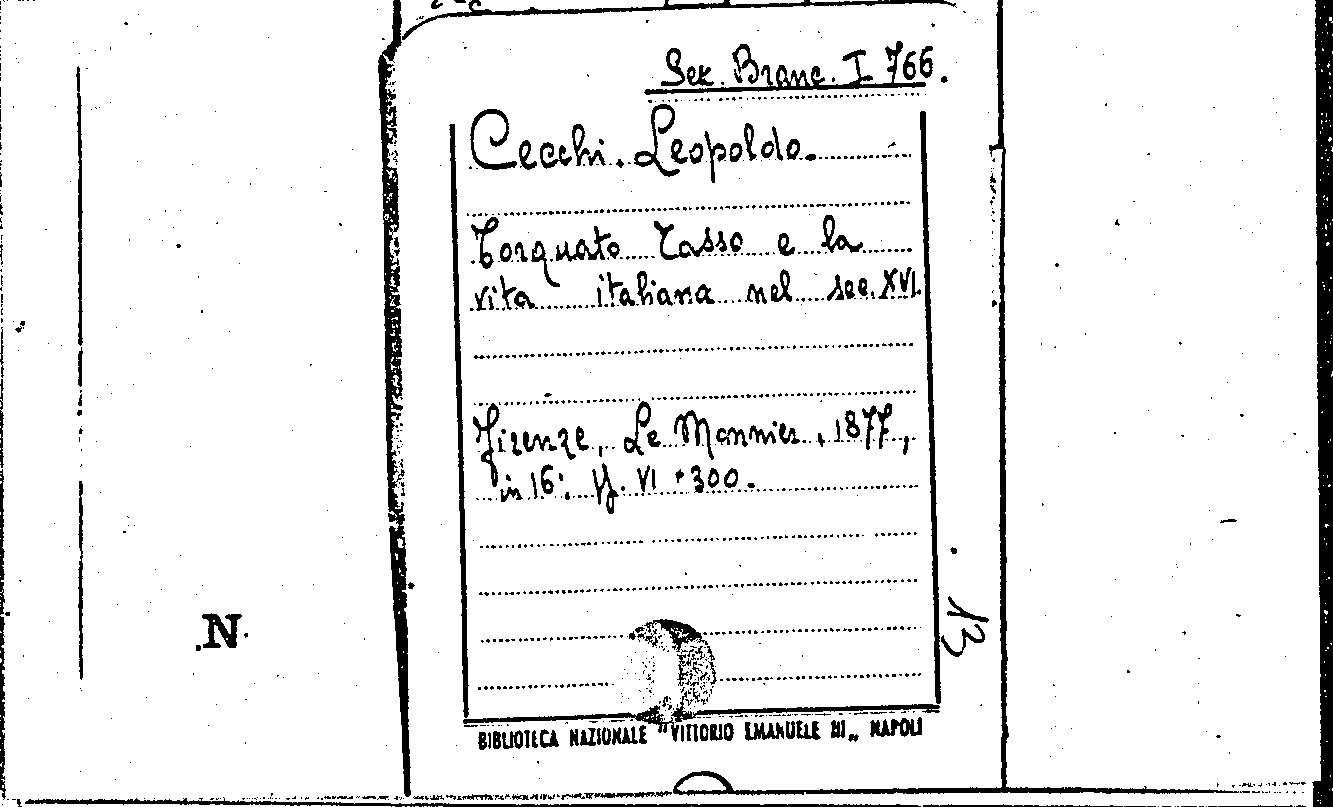 Sez. Branc. I 766.
Cecchi. Leopoldo.
Torquato Tasso e la
vita italiana nel sec. XVI.
Firenze, Le Monnier, 1877,
in 16°. pp. VI + 300.
13
.N.
BIBLIOTECA NAZIONALE "VITTORIO EMANUELE III„ NAPOLI